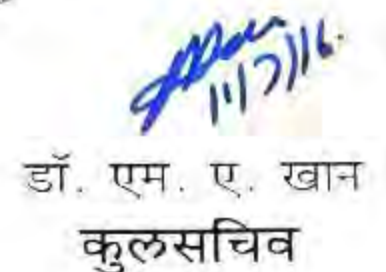 11/7/16.
डॉ. एम. ए. खान
कुलसचिव